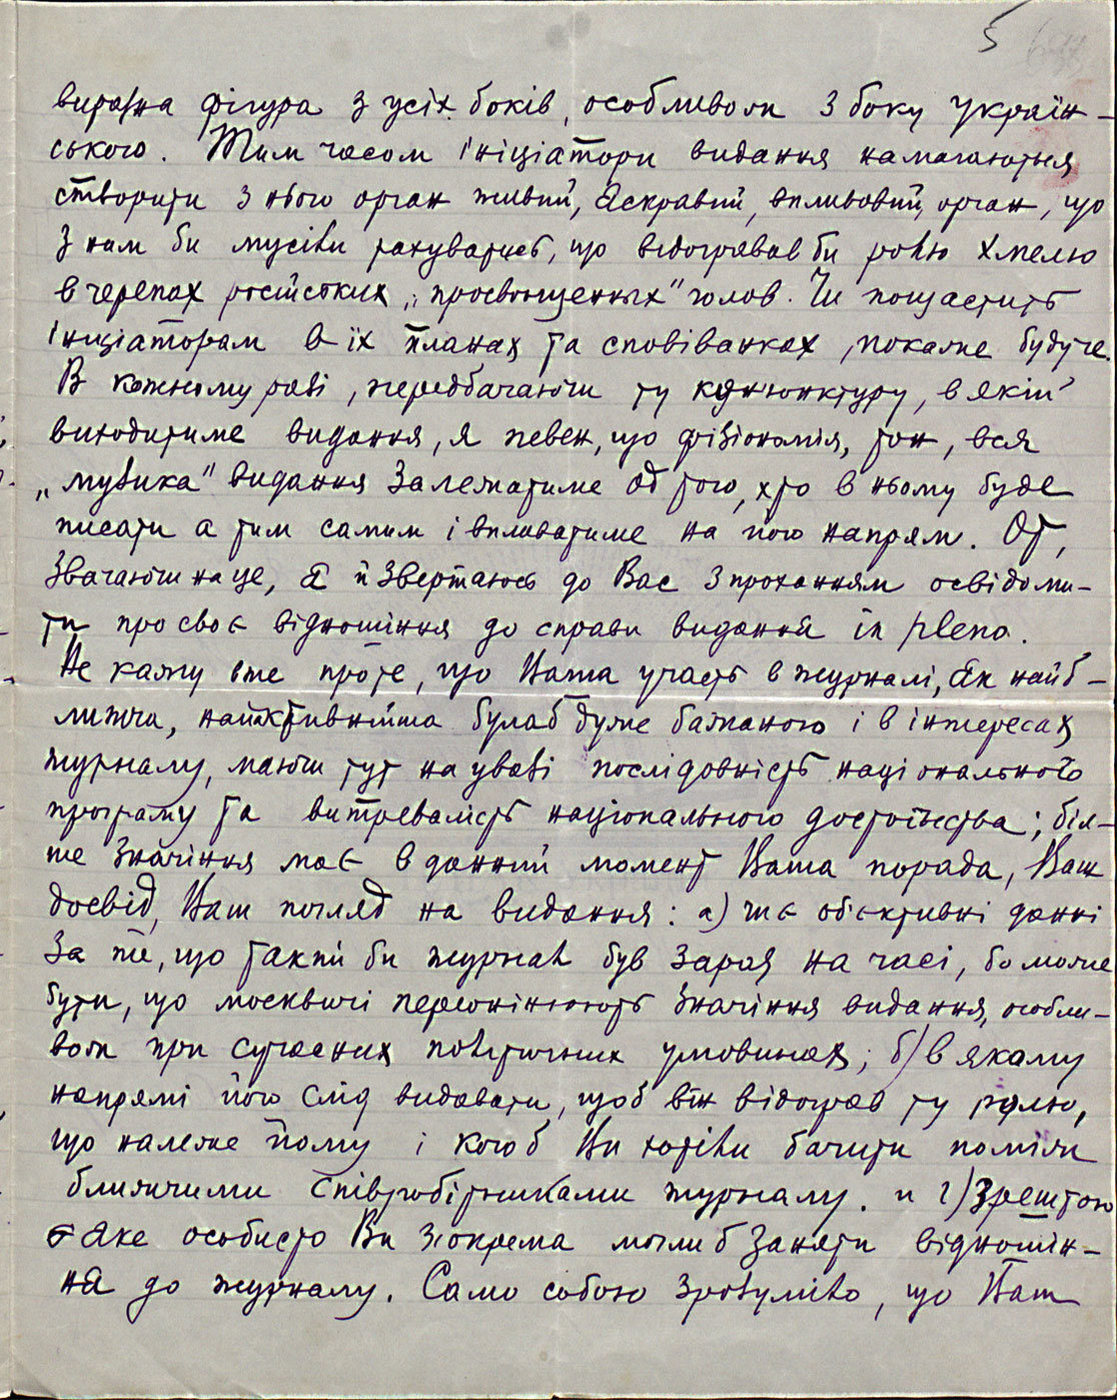 5
виразна фігура з усіх боків, особливож з боку україн-
ського. Тим часом ініціатори видання намагаються
створити з нього орган живий, яскравий, впливовий, орган, що
з ним би мусіли рахуватись, що відогравав би ролю хмелю
в черепах російських „просвѣщенных" голов. Чи пощастить
ініціаторам в їх планах та сповіванках, покаже будуче.
В кожному разі, передбачаючи ту конюнктуру, в якій
виходитиме видання, я певен, що фізіономія, тон, вся
„музика" видання залежатиме од того, хто в ньому буде
писати а тим самим і впливатиме на його напрям. От,
зважаючи на це, я й звертаюсь до Вас з проханням освідоми-
ти про своє відношіння до справи видання in pleno.
Не кажу вже проте, що Ваша участь в журналі, як найб-
лижча, найактивнійша булаб дуже бажаною і в інтересах
журналу, маючи тут на увазі послідовність національного
програму та витревалість національного достоїнства; біл-
ше значіння має в данний момент Ваша порада, Ваш
досвід, Ваш погляд на видання: а) чи є обєктивні данні
за те, що такий би журнал був зараз на часі, бо може
бути, що москвичі переоцінюють значіння видання, особли-
вож при сучасних політичних умовинах; б) в якому
напрямі його слід видавати, щоб він відограв ту ролю,
що належе йому і кого б Ви хотіли бачити поміж
ближчими співробітниками журналу. и г) Зрештою
яке особисто Ви зокрема могли б заняти відношін-
ня до журналу. Само собою зрозуміло, що Ваш